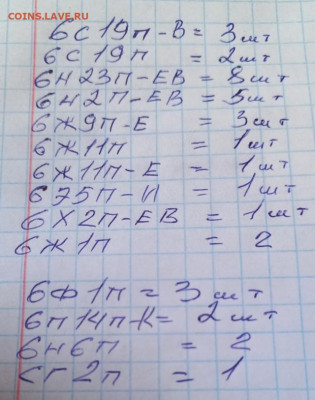 COINS.LAVE.RU
6С19П-В = 3шт
6С19П = 2шт
6Н23П-ЕВ = 8шт
6Н2П-ЕВ = 5шт
6Ж9П-Е = 3шт
6Ж11П = 1шт
6Ж11П-Е = 1шт
675П-И = 1шт
6Х2П-ЕВ = 1шт
6Ж1П = 2
6Ф1П = 3шт
6П14П-К = 2шт
6Н6П = 2
СГ2П = 1